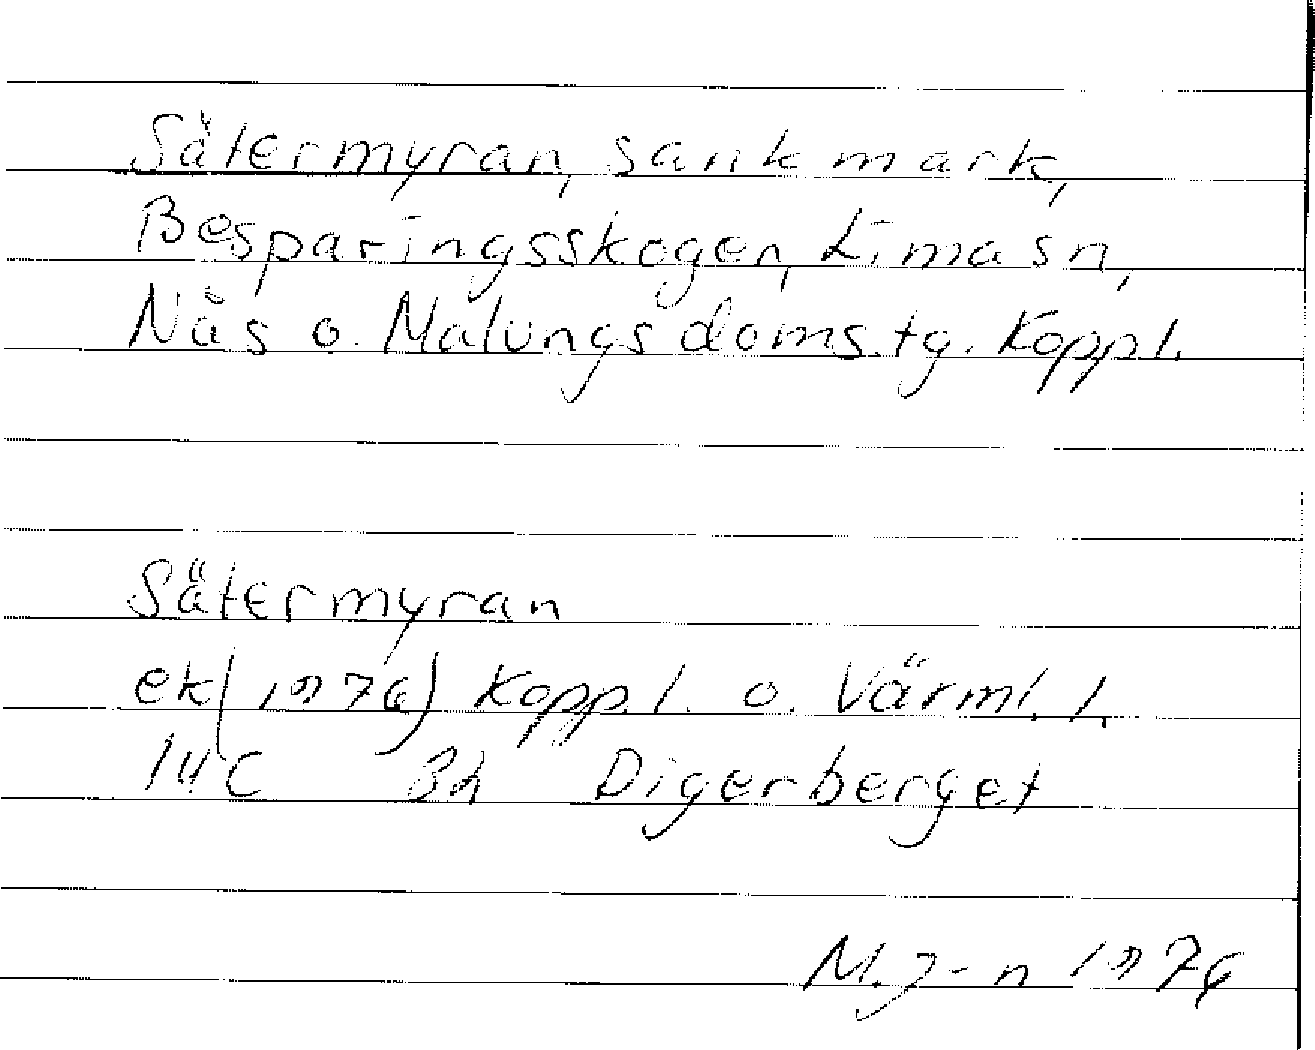 Sätermyran, sankmark,
Besparingsskogen, Lima sn,
Nås o. Malungs doms. tg. Kopp.l.
Sätermyran
ek (1976) Kopp.l. o. Värml. l.
14C 3h Digerberget
M.J-n 1976